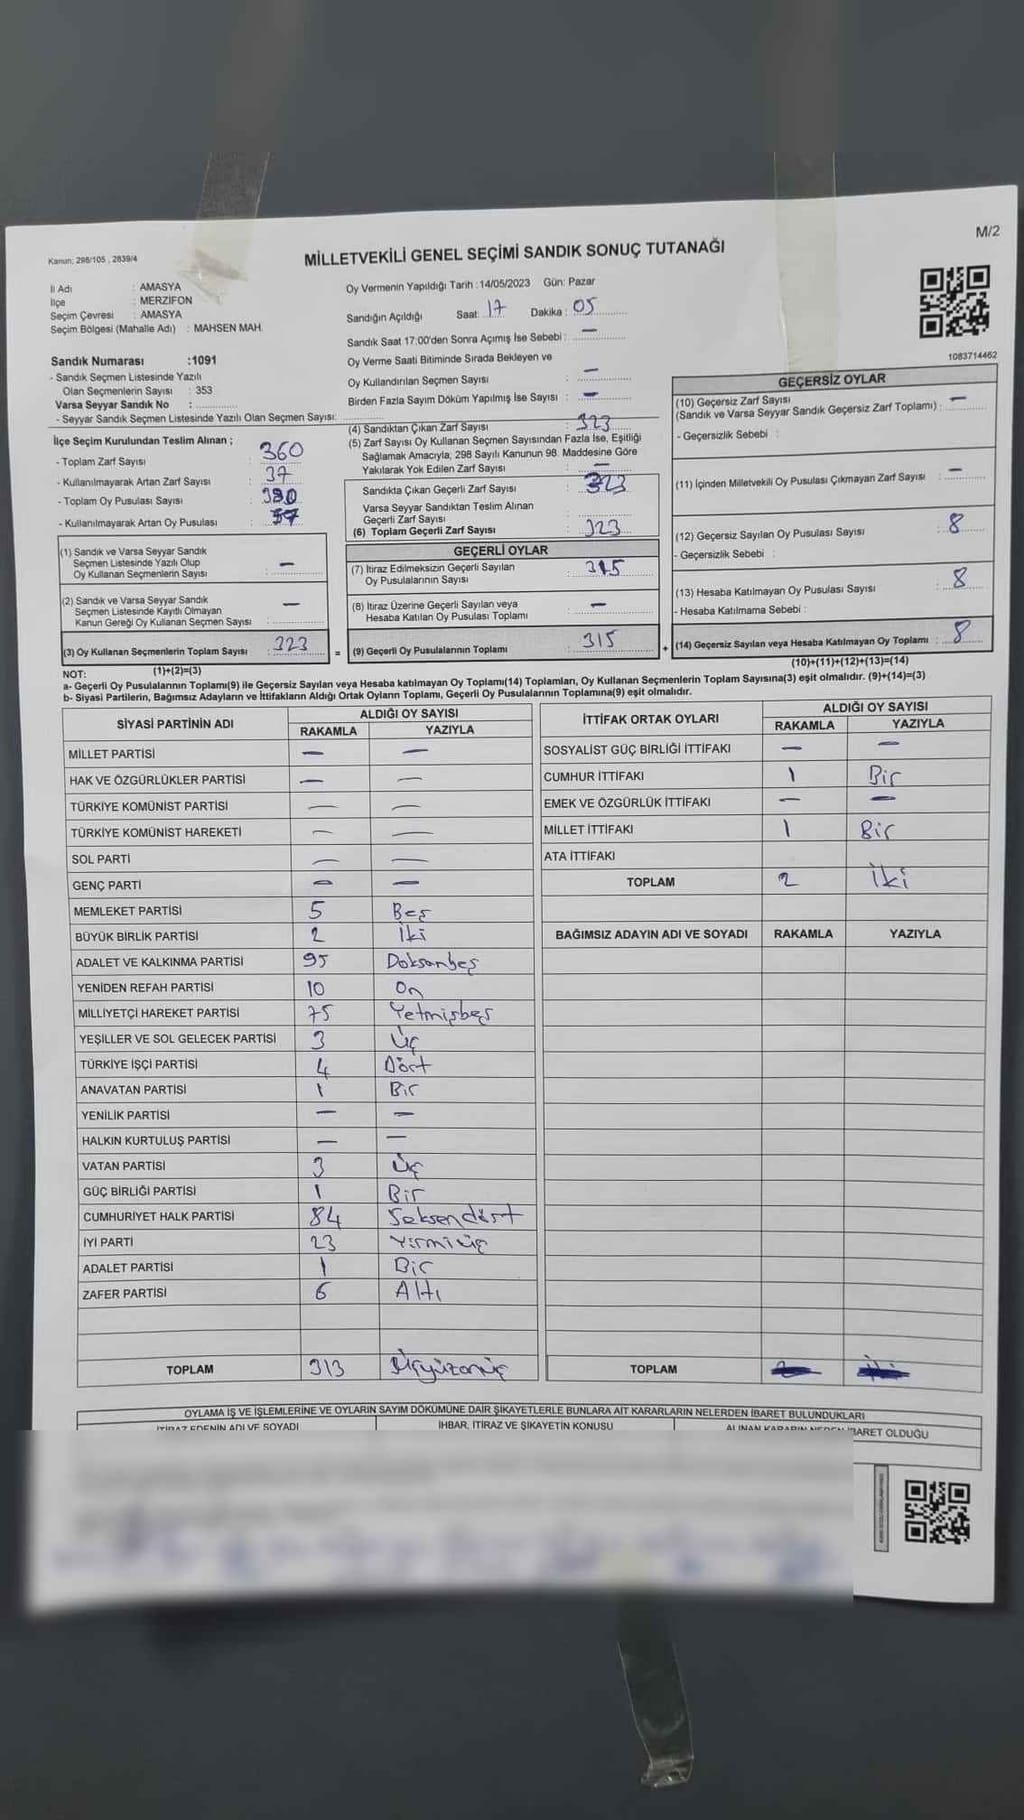 M/2
Kanun: 298/105 , 2839/4
MİLLETVEKİLİ GENEL SEÇİMİ SANDIK SONUÇ TUTANAĞI
İl Adı : AMASYA
İlçe : MERZİFON
Seçim Çevresi : AMASYA
Seçim Bölgesi (Mahalle Adı) : MAHSEN MAH.
Sandık Numarası :1091
- Sandık Seçmen Listesinde Yazılı
Olan Seçmenlerin Sayısı : 353
Varsa Seyyar Sandık No :
- Seyyar Sandık Seçmen Listesinde Yazılı Olan Seçmen Sayısı:
Oy Vermenin Yapıldığı Tarih :14/05/2023 Gün: Pazar
Sandığın Açıldığı Saat: 17 Dakika : 05
Sandık Saat 17:00'den Sonra Açımış İse Sebebi : —
Oy Verme Saati Bitiminde Sırada Bekleyen ve
Oy Kullandırılan Seçmen Sayısı : —
Birden Fazla Sayım Döküm Yapılmış İse Sayısı : —
1083714462
İlçe Seçim Kurulundan Teslim Alınan ;
- Toplam Zarf Sayısı : 360
- Kullanılmayarak Artan Zarf Sayısı : 37
- Toplam Oy Pusulası Sayısı :
- Kullanılmayarak Artan Oy Pusulası :
(1) Sandık ve Varsa Seyyar Sandık
Seçmen Listesinde Yazılı Olup
Oy Kullanan Seçmenlerin Sayısı : —
(2) Sandık ve Varsa Seyyar Sandık
Seçmen Listesinde Kayıtlı Olmayan
Kanun Gereği Oy Kullanan Seçmen Sayısı : —
(3) Oy Kullanan Seçmenlerin Toplam Sayısı : 323 =
(4) Sandıktan Çıkan Zarf Sayısı : 323
(5) Zarf Sayısı Oy Kullanan Seçmen Sayısından Fazla İse, Eşitliği
Sağlamak Amacıyla, 298 Sayılı Kanunun 98. Maddesine Göre
Yakılarak Yok Edilen Zarf Sayısı : —
Sandıkta Çıkan Geçerli Zarf Sayısı : 323
Varsa Seyyar Sandıktan Teslim Alınan
Geçerli Zarf Sayısı
(6) Toplam Geçerli Zarf Sayısı : 323
GEÇERLİ OYLAR
(7) İtiraz Edilmeksizin Geçerli Sayılan
Oy Pusulalarının Sayısı : 315
(8) İtiraz Üzerine Geçerli Sayılan veya
Hesaba Katılan Oy Pusulası Toplamı : —
(9) Geçerli Oy Pusulalarının Toplamı : 315 +
GEÇERSİZ OYLAR
(10) Geçersiz Zarf Sayısı
(Sandık ve Varsa Seyyar Sandık Geçersiz Zarf Toplamı) : —
- Geçersizlik Sebebi :
(11) İçinden Milletvekili Oy Pusulası Çıkmayan Zarf Sayısı : —
(12) Geçersiz Sayılan Oy Pusulası Sayısı : 8
- Geçersizlik Sebebi :
(13) Hesaba Katılmayan Oy Pusulası Sayısı : 8
- Hesaba Katılmama Sebebi :
(14) Geçersiz Sayılan veya Hesaba Katılmayan Oy Toplamı : 8
NOT: (1)+(2)=(3)
(10)+(11)+(12)+(13)=(14)
a- Geçerli Oy Pusulalarının Toplamı(9) ile Geçersiz Sayılan veya Hesaba katılmayan Oy Toplamı(14) Toplamları, Oy Kullanan Seçmenlerin Toplam Sayısına(3) eşit olmalıdır. (9)+(14)=(3)
b- Siyasi Partilerin, Bağımsız Adayların ve İttifakların Aldığı Ortak Oyların Toplamı, Geçerli Oy Pusulalarının Toplamına(9) eşit olmalıdır.
SİYASİ PARTİNİN ADI ALDIĞI OY SAYISI
RAKAMLA YAZIYLA
MİLLET PARTİSİ — —
HAK VE ÖZGÜRLÜKLER PARTİSİ — —
TÜRKİYE KOMÜNİST PARTİSİ — —
TÜRKİYE KOMÜNİST HAREKETİ — —
SOL PARTİ — —
GENÇ PARTİ — —
MEMLEKET PARTİSİ 5 Beş
BÜYÜK BİRLİK PARTİSİ 2 İki
ADALET VE KALKINMA PARTİSİ 95 Doksanbeş
YENİDEN REFAH PARTİSİ 10 On
MİLLİYETÇİ HAREKET PARTİSİ 75 Yetmişbeş
YEŞİLLER VE SOL GELECEK PARTİSİ 3 Üç
TÜRKİYE İŞÇİ PARTİSİ 4 Dört
ANAVATAN PARTİSİ 1 Bir
YENİLİK PARTİSİ — —
HALKIN KURTULUŞ PARTİSİ — —
VATAN PARTİSİ 3 Üç
GÜÇ BİRLİĞİ PARTİSİ 1 Bir
CUMHURİYET HALK PARTİSİ 84 Seksendört
İYİ PARTİ 23 Yirmiüç
ADALET PARTİSİ 1 Bir
ZAFER PARTİSİ 6 Altı
TOPLAM 313 Üçyüzonüç
İTTİFAK ORTAK OYLARI ALDIĞI OY SAYISI
RAKAMLA YAZIYLA
SOSYALİST GÜÇ BİRLİĞİ İTTİFAKI — —
CUMHUR İTTİFAKI 1 Bir
EMEK VE ÖZGÜRLÜK İTTİFAKI — —
MİLLET İTTİFAKI 1 Bir
ATA İTTİFAKI
TOPLAM 2 İki
BAĞIMSIZ ADAYIN ADI VE SOYADI RAKAMLA YAZIYLA
TOPLAM
OYLAMA İŞ VE İŞLEMLERİNE VE OYLARIN SAYIM DÖKÜMÜNE DAİR ŞİKAYETLERLE BUNLARA AİT KARARLARIN NELERDEN İBARET BULUNDUKLARI
İTİRAZ EDENİN ADI VE SOYADI İHBAR, İTİRAZ VE ŞİKAYETİN KONUSU ALINAN KARARIN NEDEN İBARET OLDUĞU